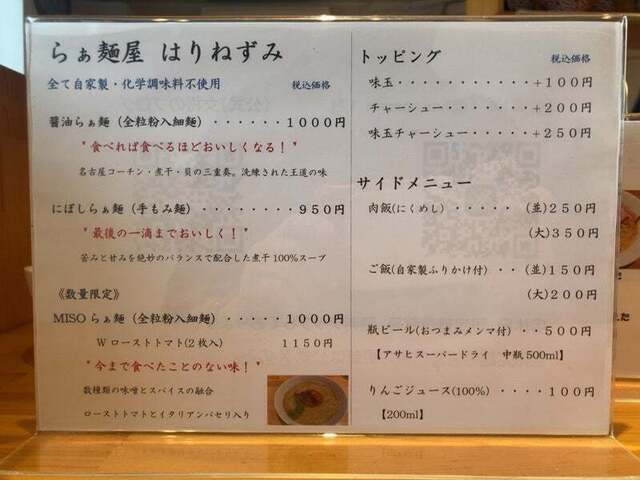 らぁ麺屋 はりねずみ
全て自家製・化学調味料不使用 税込価格
醤油らぁ麺（全粒粉入細麺）・・・・・・１０００円
"食べれば食べるほどおいしくなる！"
名古屋コーチン・煮干・貝の三重奏。洗練された王道の味
にぼしらぁ麺（手もみ麺）・・・・・・・・９５０円
"最後の一滴までおいしく！"
苦みと甘みを絶妙のバランスで配合した煮干100%スープ
《数量限定》
MISOらぁ麺（全粒粉入細麺）・・・・・１０００円
Wローストトマト(2枚入) １１５０円
"今まで食べたことのない味！"
数種類の味噌とスパイスの融合
ローストトマトとイタリアンパセリ入り
トッピング 税込価格
味玉・・・・・・・・・・・・・＋１００円
チャーシュー・・・・・・・・・＋２００円
味玉チャーシュー・・・・・・・＋２５０円
サイドメニュー
肉飯(にくめし)・・・・・ (並)２５０円
(大)３５０円
ご飯(自家製ふりかけ付)・・(並)１５０円
(大)２００円
瓶ビール(おつまみメンマ付)・・５００円
【アサヒスーパードライ 中瓶500ml】
りんごジュース(100%)・・・・１００円
【200ml】